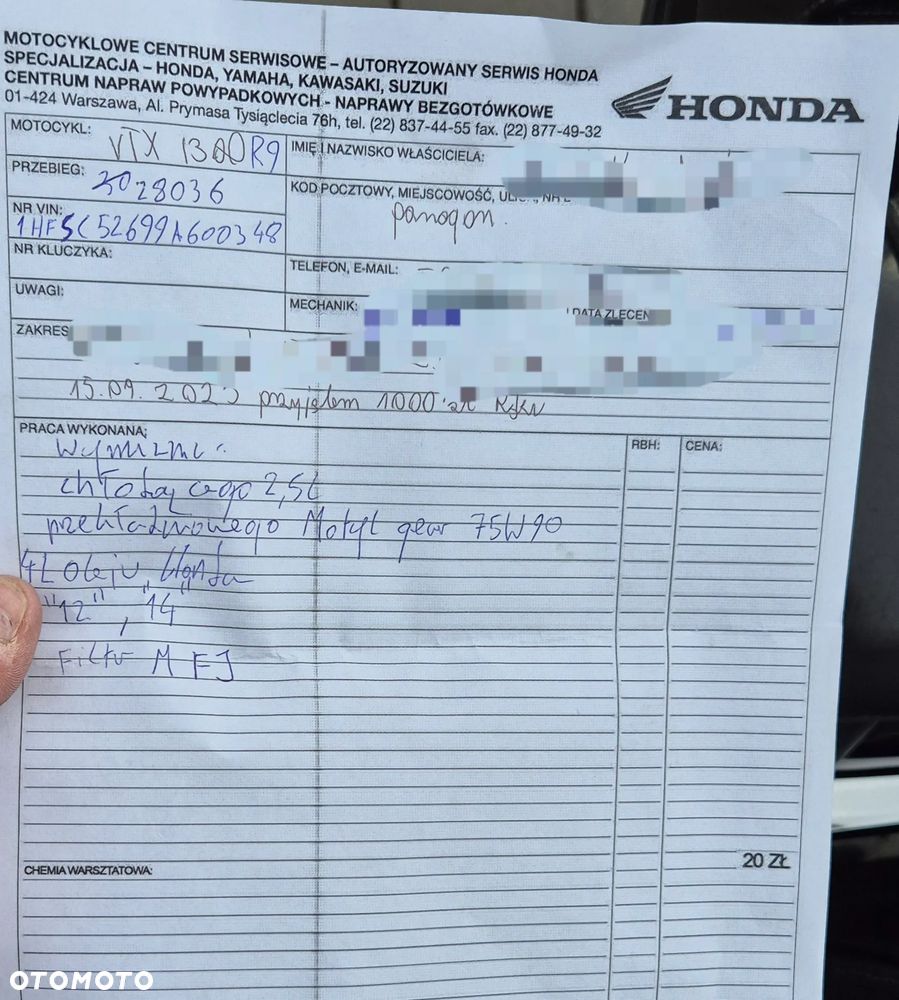 MOTOCYKLOWE CENTRUM SERWISOWE - AUTORYZOWANY SERWIS HONDA
SPECJALIZACJA - HONDA, YAMAHA, KAWASAKI, SUZUKI
CENTRUM NAPRAW POWYPADKOWYCH - NAPRAWY BEZGOTÓWKOWE
01-424 Warszawa, Al. Prymasa Tysiąclecia 76h, tel. (22) 837-44-55 fax. (22) 877-49-32
HONDA
MOTOCYKL: VTX 1300 R9
IMIĘ I NAZWISKO WŁAŚCICIELA:
PRZEBIEG: 28036
KOD POCZTOWY, MIEJSCOWOŚĆ,
NR VIN: 1HFSC52699A600348
NR KLUCZYKA:
TELEFON, E-MAIL:
UWAGI:
MECHANIK:
DATA ZLECEN
ZAKRES
przyjąłem 1000 zł
PRACA WYKONANA:
RBH:
CENA:
chłodzącego 2,5L
przekładniowego Motyl gear 75W90
4L oleju
"12", "14"
Filtr
CHEMIA WARSZTATOWA:
20 ZŁ
OTOMOTO